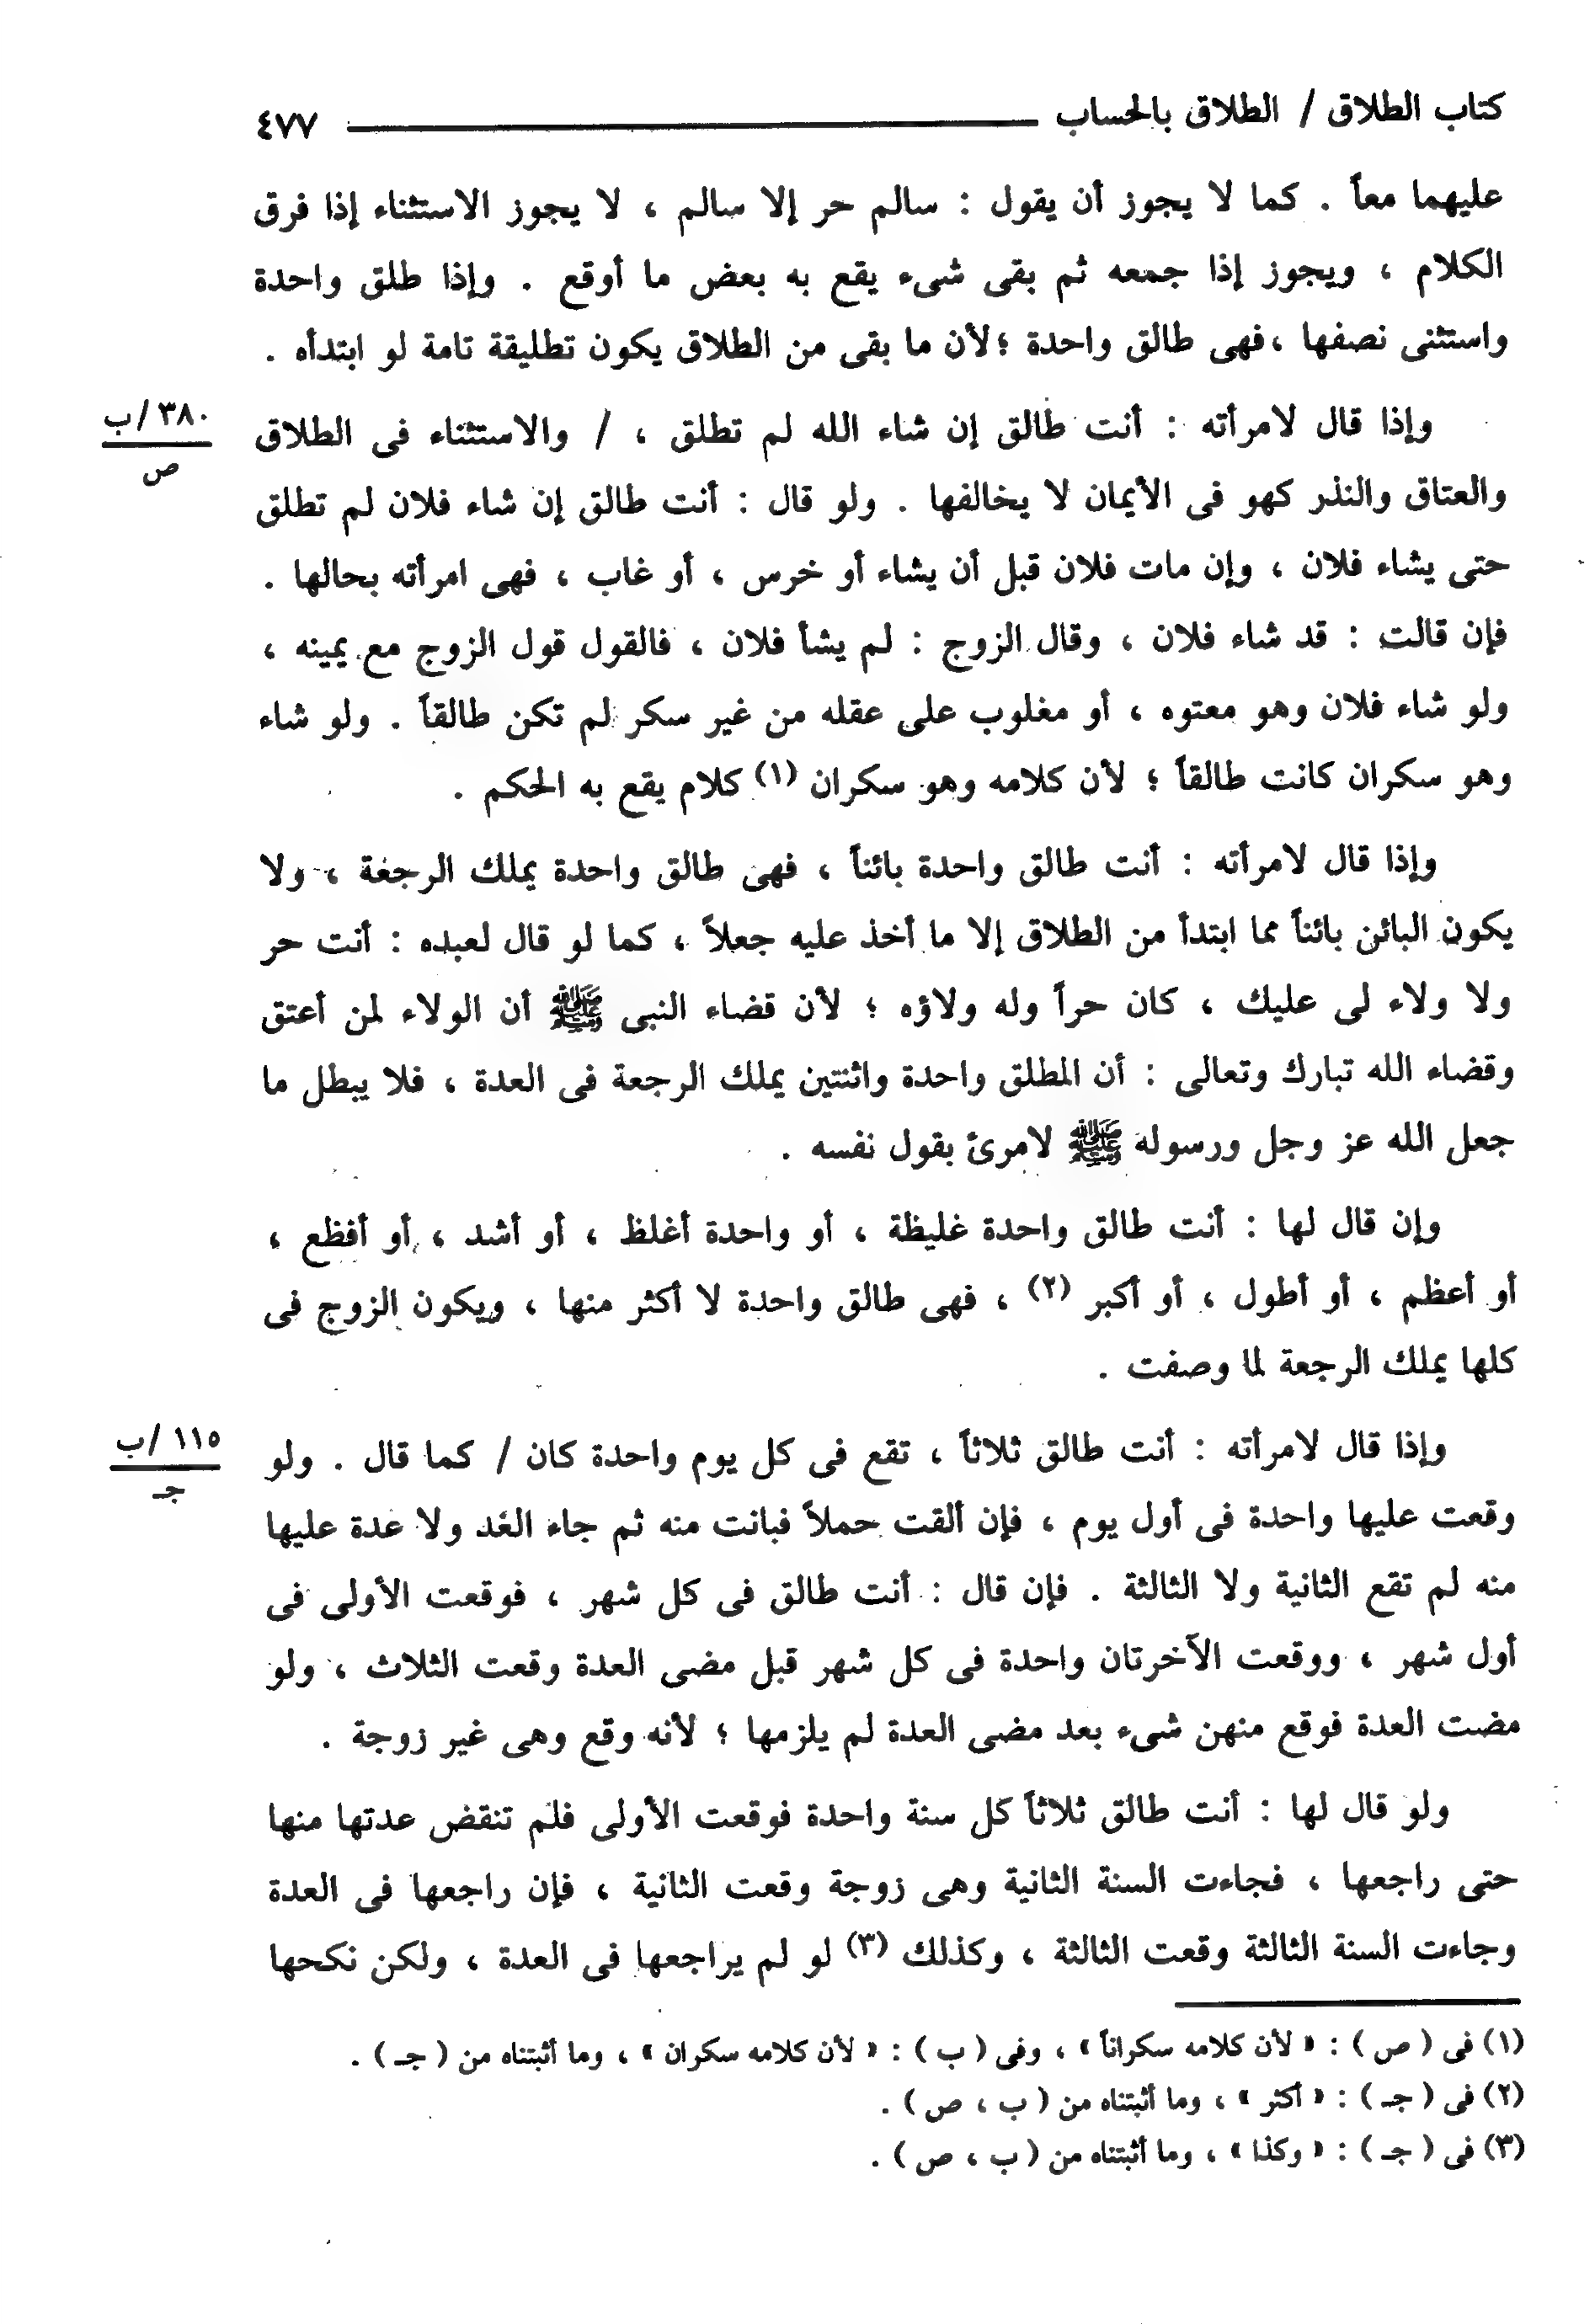 كتاب الطلاق / الطلاق بالحساب ٤٧٧
عليهما معاً . كما لا يجوز أن يقول : سالم حر إلا سالم ، لا يجوز الاستثناء إذا فرق
الكلام ، ويجوز إذا جمعه ثم بقى شىء يقع به بعض ما أوقع . وإذا طلق واحدة
واستثنى نصفها ،فهى طالق واحدة ؛لأن ما بقى من الطلاق يكون تطليقة تامة لو ابتدأه .
وإذا قال لامرأته : أنت طالق إن شاء الله لم تطلق ، / والاستثناء فى الطلاق
٣٨٠ /ب
ص
والعتاق والنذر كهو فى الأيمان لا يخالفها . ولو قال : أنت طالق إن شاء فلان لم تطلق
حتى يشاء فلان ، وإن مات فلان قبل أن يشاء أو خرس ، أو غاب ، فهى امرأته بحالها .
فإن قالت : قد شاء فلان ، وقال الزوج : لم يشأ فلان ، فالقول قول الزوج مع يمينه ،
ولو شاء فلان وهو معتوه ، أو مغلوب على عقله من غير سكر لم تكن طالقاً . ولو شاء
وهو سكران كانت طالقاً ؛ لأن كلامه وهو سكران (١) كلام يقع به الحكم .
وإذا قال لامرأته : أنت طالق واحدة بائناً ، فهى طالق واحدة يملك الرجعة ، ولا
يكون البائن بائناً مما ابتدأ من الطلاق إلا ما أخذ عليه جعلاً ، كما لو قال لعبده : أنت حر
ولا ولاء لى عليك ، كان حراً وله ولاؤه ؛ لأن قضاء النبى ﷺ أن الولاء لمن أعتق
وقضاء الله تبارك وتعالى : أن المطلق واحدة واثنتين يملك الرجعة فى العدة ، فلا يبطل ما
جعل الله عز وجل ورسوله ﷺ لامرئ بقول نفسه .
وإن قال لها : أنت طالق واحدة غليظة ، أو واحدة أغلظ ، أو أشد ، أو أفظع ،
أو أعظم ، أو أطول ، أو أكبر (٢) ، فهى طالق واحدة لا أكثر منها ، ويكون الزوج فى
كلها يملك الرجعة لما وصفت .
وإذا قال لامرأته : أنت طالق ثلاثاً ، تقع فى كل يوم واحدة كان / كما قال . ولو
١١٥ /ب
جـ
وقعت عليها واحدة فى أول يوم ، فإن ألقت حملاً فبانت منه ثم جاء الغد ولا عدة عليها
منه لم تقع الثانية ولا الثالثة . فإن قال : أنت طالق فى كل شهر ، فوقعت الأولى فى
أول شهر ، ووقعت الآخرتان واحدة فى كل شهر قبل مضى العدة وقعت الثلاث ، ولو
مضت العدة فوقع منهن شىء بعد مضى العدة لم يلزمها ؛ لأنه وقع وهى غير زوجة .
ولو قال لها : أنت طالق ثلاثاً كل سنة واحدة فوقعت الأولى فلم تنقض عدتها منها
حتى راجعها ، فجاءت السنة الثانية وهى زوجة وقعت الثانية ، فإن راجعها فى العدة
وجاءت السنة الثالثة وقعت الثالثة ، وكذلك (٣) لو لم يراجعها فى العدة ، ولكن نكحها
(١) فى ( ص ) : « لأن كلامه سكراناً » ، وفى ( ب ) : « لأن كلامه سكران » ، وما أثبتناه من ( جـ ) .
(٢) فى ( جـ ) : « أكثر » ، وما أثبتناه من ( ب ، ص ) .
(٣) فى ( جـ ) : « وكذا » ، وما أثبتناه من ( ب ، ص ) .